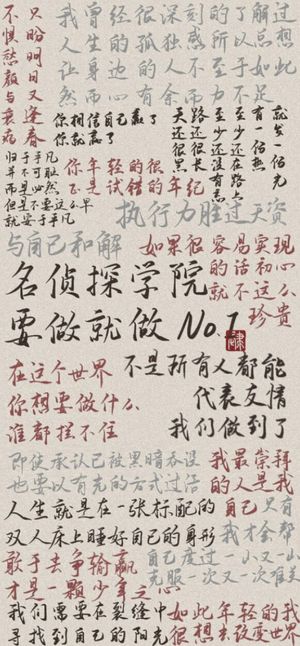 只盼明日又逢春
不惧愁颜与衰病
我曾经很深刻的了解过
人生的孤独感所以总想
让身边的人不至于如此
然而心有余而力不足
你相信自己赢了
你就赢了
天还很黑
路还很长
至少还没有志
至少还在路上
有一份热
就发一份光
归于平凡
并不可耻
而是必然
但是不要这么早
就安于平凡
你年轻的很
正是试错的年纪
执行力胜过天资
与自己和解
如果很容易实现
的话初心
就不这么
珍贵
名侦探学院
要做就做No.1
在这个世界
你想要做什么
谁都拦不住
不是所有人都能
代表友情
我们做到了
即使承认已被黑暗吞没
也要以有光的方式过活
我最崇拜
的人是我
自己
人生就是在一张标配的
双人床上睡好自己的身形
只有
我才会帮
自己度过一山又一山
克服一次又一次难关
敢于去争输赢
才是一颗少年之心
我们需要在裂缝中
寻找到自己的阳光
如此年轻的我
很想去改变世界